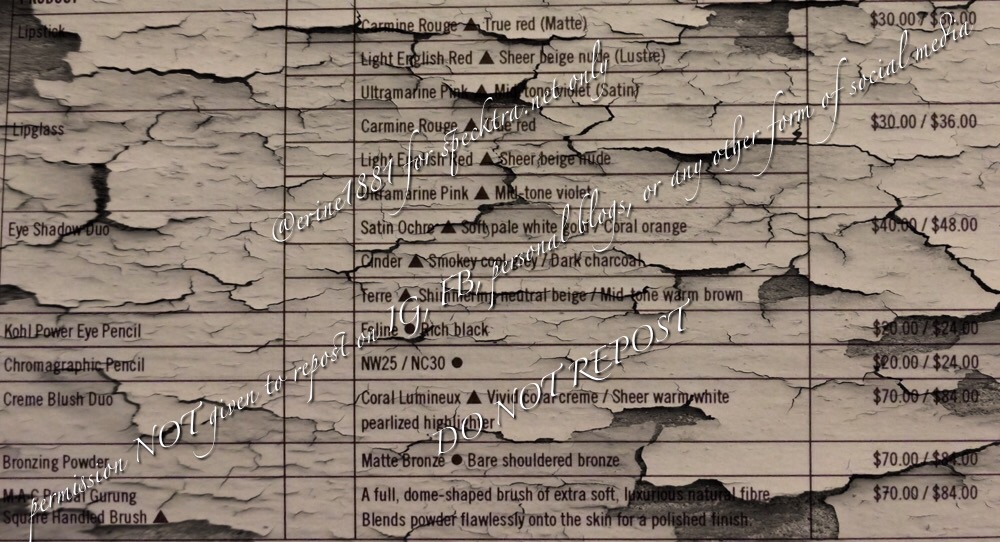 PRODUCT
Lipstick Carmine Rouge ▲ True red (Matte) $30.00 / $36.00
Light English Red ▲ Sheer beige nude (Lustre)
Ultramarine Pink ▲ Mid-tone violet (Satin)
Lipglass Carmine Rouge ▲ True red $30.00 / $36.00
Light English Red ▲ Sheer beige nude
Ultramarine Pink ▲ Mid-tone violet
Eye Shadow Duo Satin Ochre ▲ Soft pale white gold / Coral orange $40.00 / $48.00
Cinder ▲ Smokey cool grey / Dark charcoal
Terre ▲ Shimmering neutral beige / Mid-tone warm brown
Kohl Power Eye Pencil Feline ● Rich black $20.00 / $24.00
Chromagraphic Pencil NW25 / NC30 ● $20.00 / $24.00
Creme Blush Duo Coral Lumineux ▲ Vivid coral creme / Sheer warm white $70.00 / $84.00
pearlized highlighter
Bronzing Powder Matte Bronze ● Bare shouldered bronze $70.00 / $84.00
M·A·C Prabal Gurung A full, dome-shaped brush of extra soft, luxurious natural fibre. $70.00 / $84.00
Square Handled Brush ▲ Blends powder flawlessly onto the skin for a polished finish.
@erine1881 for specktra.net only
permission NOT given to repost on IG, FB, personal blogs, or any other form of social media
DO NOT REPOST